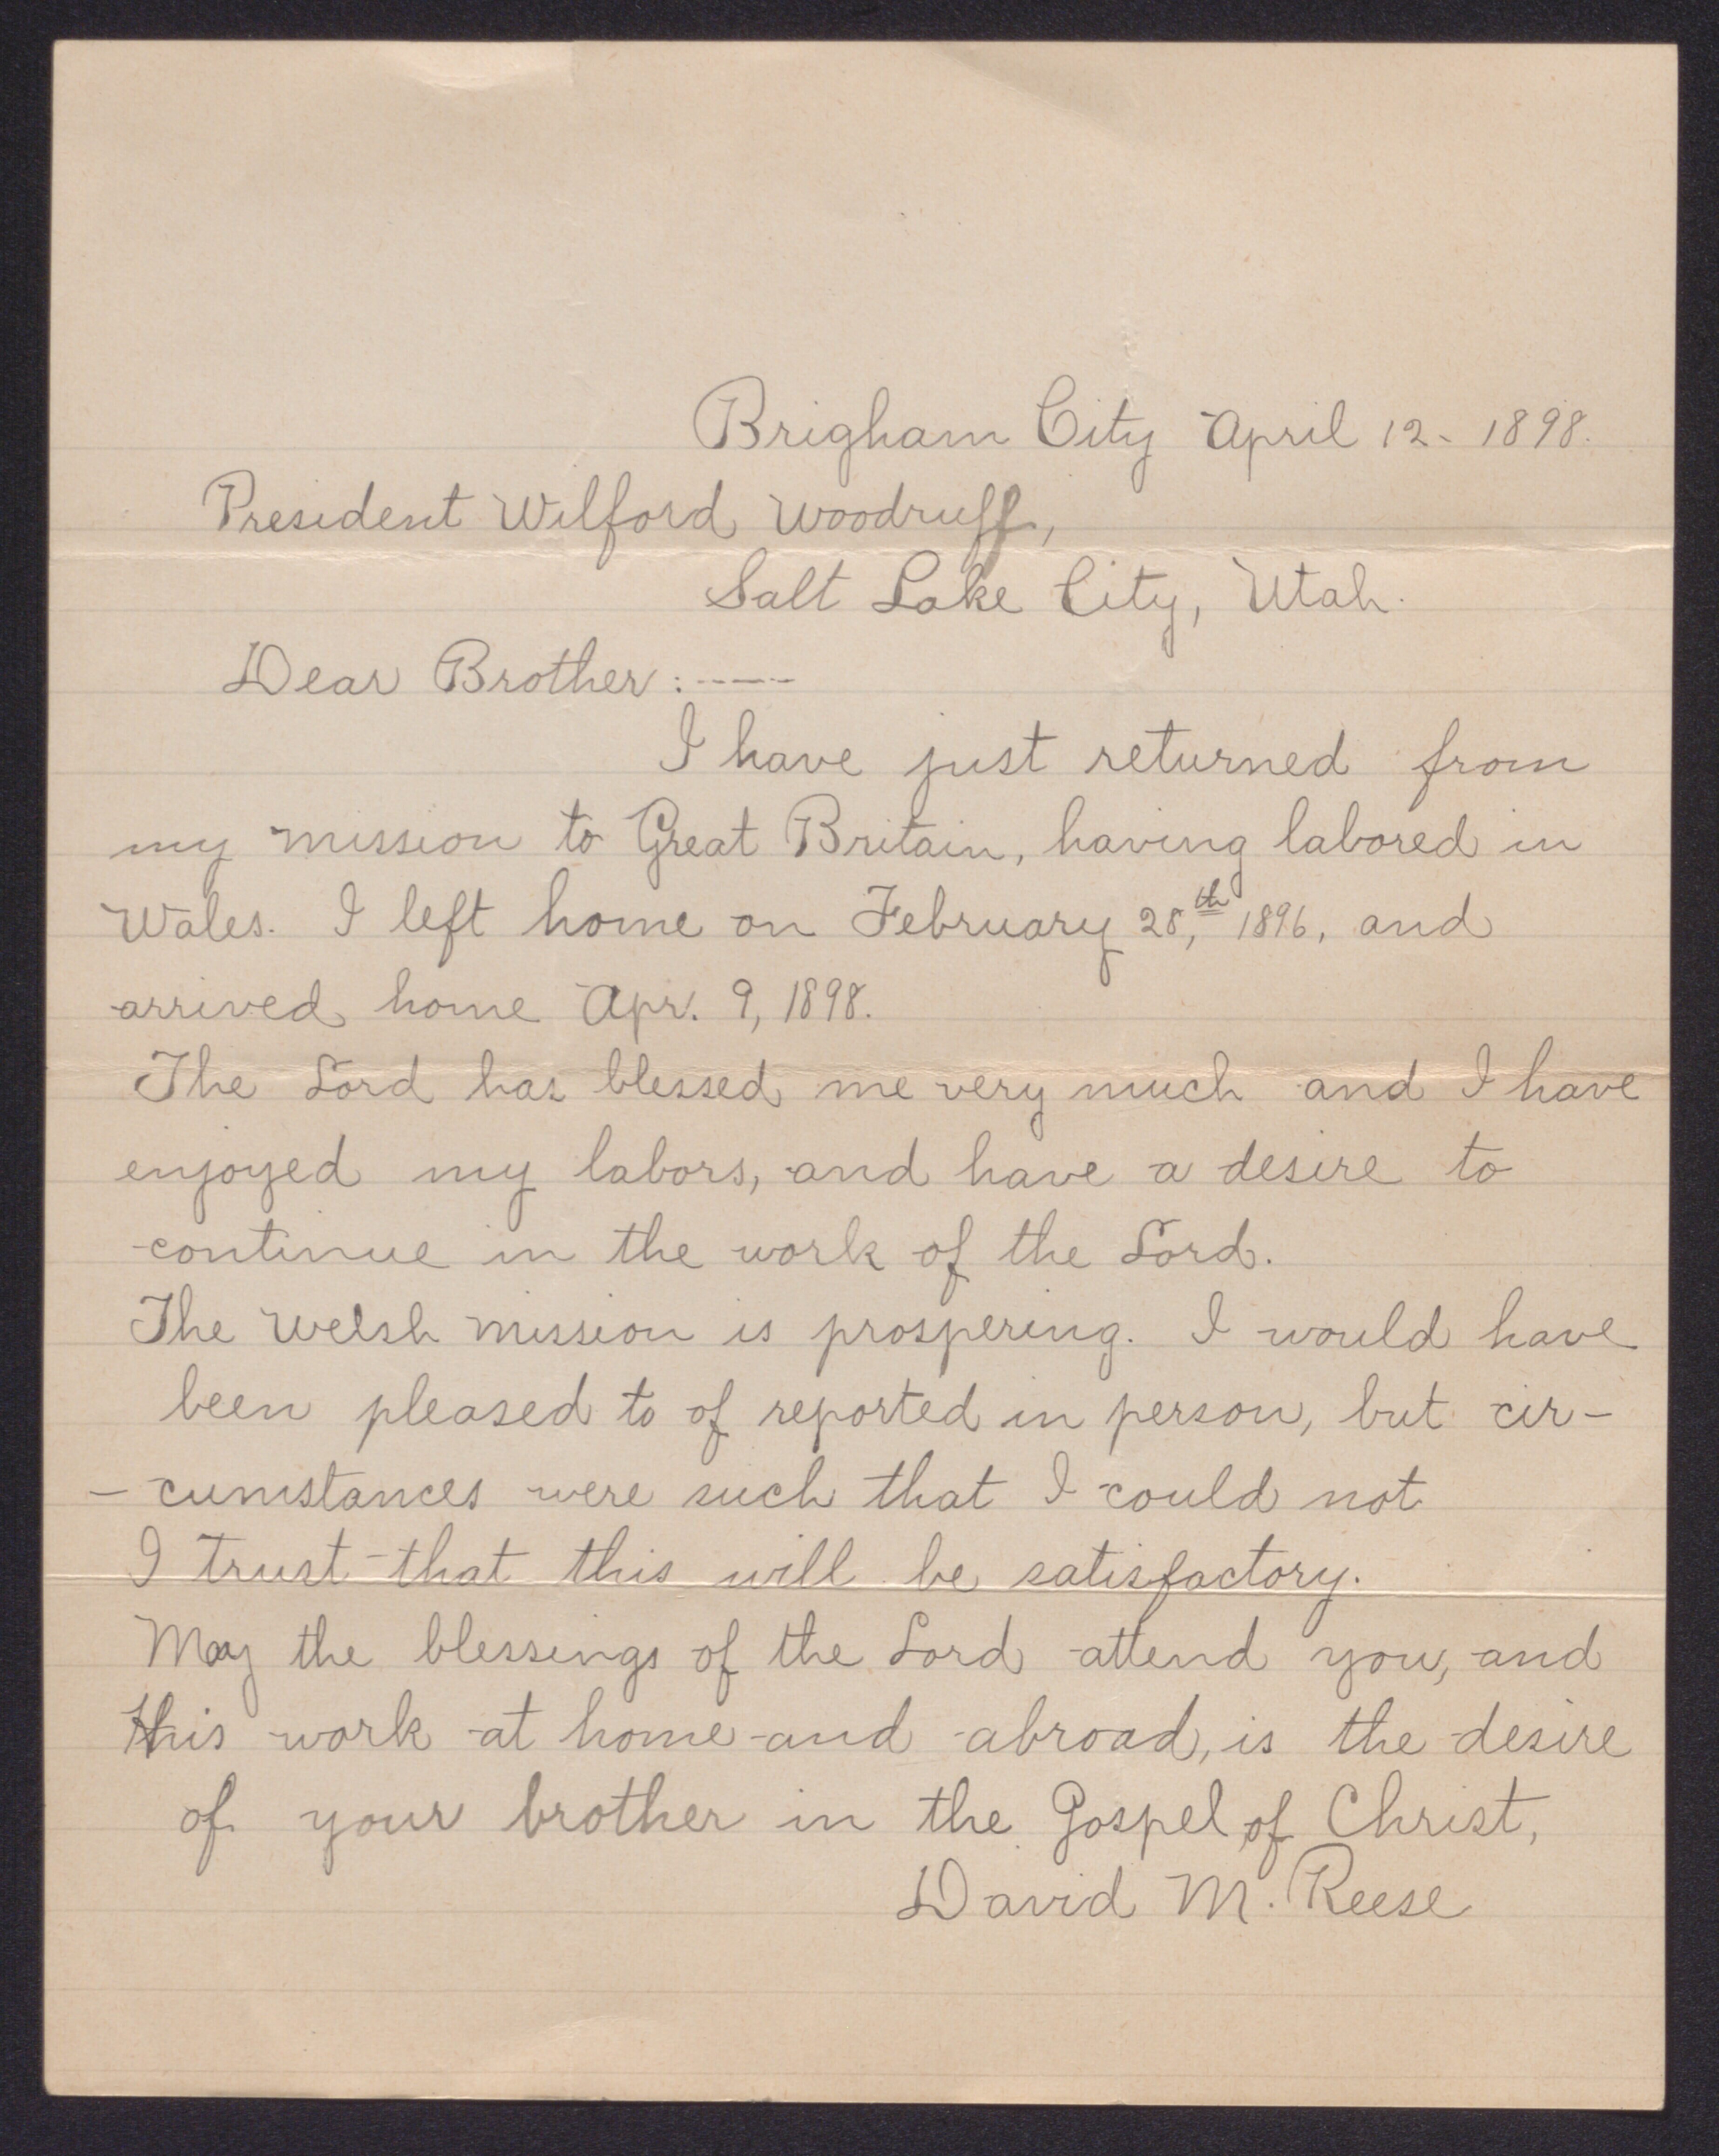 Brigham City April 12- 1898.
President Wilford Woodruff,
Salt Lake City, Utah.
Dear Brother:----
I have just returned from
my mission to Great Britain, having labored in
Wales. I left home on February 28,th 1896, and
arrived home Apr. 9, 1898.
The Lord has blessed me very much and I have
enjoyed my labors, and have a desire to
continue in the work of the Lord.
The Welsh mission is prospering. I would have
been pleased to of reported in person, but cir-
-cumstances were such that I could not
I trust that this will be satisfactory.
May the blessings of the Lord attend you, and
this work at home and abroad, is the desire
of your brother in the Gospel of Christ,
David M. Reese